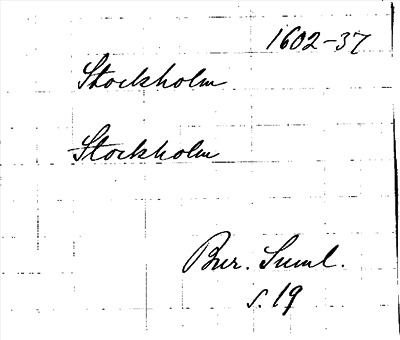 1602-37
Stockholm
Stockholm
Bur. Suml.
s. 19